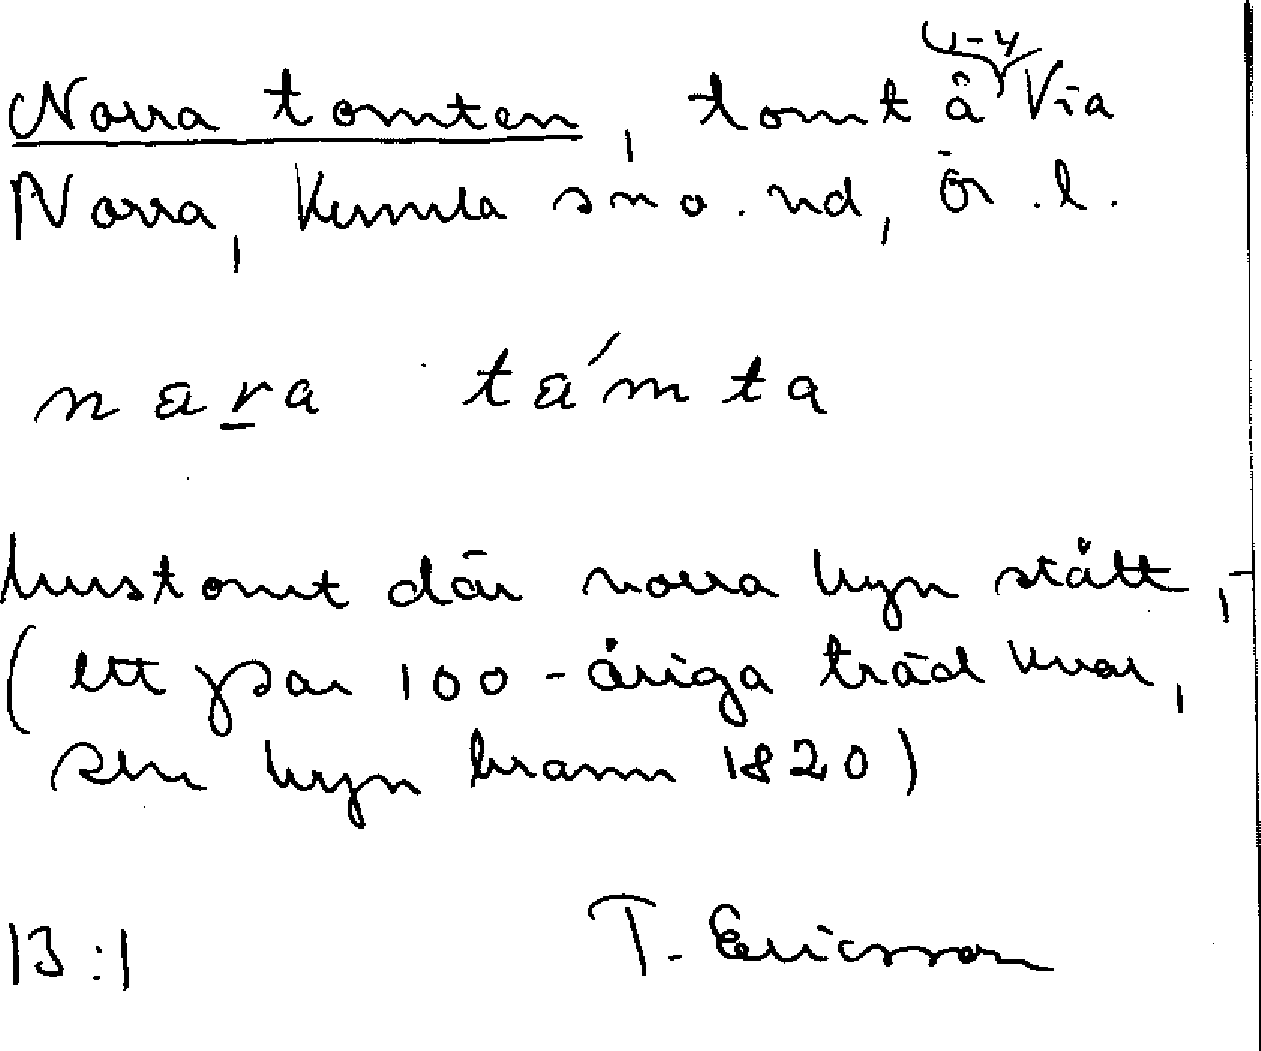 U-4
Norra tomten, tomt å Via
Norra, Kumla sn o. hd, Ör. l.
nara támta
hustomt där norra byn stått,
(ett par 100-åriga träd kvar,
sen byn brann 1820)
13:1 T. Ericsson